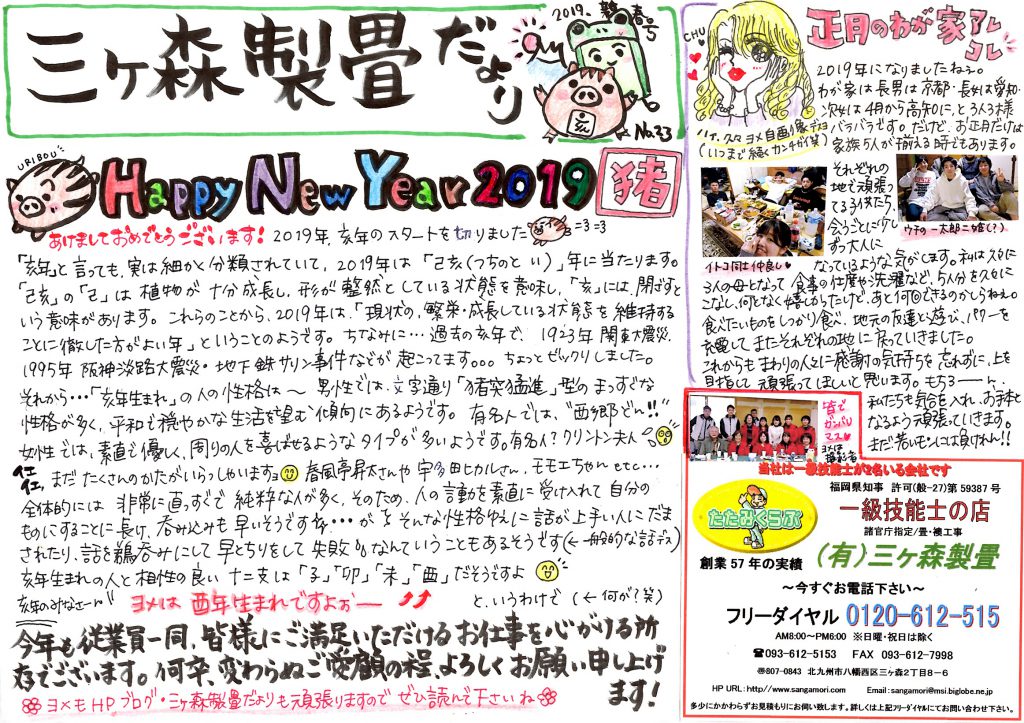 三ヶ森製畳だより
2019.新春号
亥
No.33
URIBOU
Happy New Year 2019
猪
あけましておめでとうございます! 2019年、亥年のスタートを切りました
「亥年」と言っても、実は細かく分類されていて、2019年は「己亥(つちのと い)」年に当たります。
「己亥」の「己」は植物が十分成長し、形が整然としている状態を意味し、「亥」には、閉ざすと
いう意味があります。これらのことから、2019年は、「現状の、繁栄・成長している状態を維持する
ことに徹した方がよい年」ということのようです。ちなみに…過去の亥年で、1923年関東大震災、
1995年阪神淡路大震災・地下鉄サリン事件などが起こってます。。。ちょっとビックリしました。
それから…「亥年生まれ」の人の性格は〜 男性では、文字通り「猪突猛進」型のまっすぐな
性格が多く、平和で穏やかな生活を望む傾向にあるようです。有名人では、“西郷どん!!”
女性では、素直で優しく、周りの人を喜ばせるようなタイプが多いようです。有名人?クリントン夫人
まだたくさんのかたがいらっしゃいますョ 春風亭昇太さんや宇多田ヒカルさん、モモエちゃん etc…
全体的には 非常に真っすぐで純粋な人が多く、そのため、人の言動を素直に受け入れて自分の
ものにすることに長け、呑み込みも早いそうです…が そんな性格ゆえに話が上手い人にだま
されたり、話を鵜呑みにして早とちりをして失敗なんていうこともあるそうです(←一般的な話デス)
亥年生まれの人と相性の良い十二支は「子」「卯」「未」「酉」だそうですよ
亥年のみなさーん ヨメは酉年生まれですよぉー というわけで(←何が?笑)
今年も従業員一同、皆様にご満足いただけるお仕事を心がける所
存でございます。何卒、変わらぬご愛顧の程、よろしくお願い申し上げ
ます!
ヨメもHPブログ・三ヶ森製畳だよりも頑張りますので ぜひ読んで下さいね
CHU
ハイ、タダヨメ自画像デスヨ
(いつまで続くカンチガイ笑)
正月のわが家アレコレ
2019年になりましたねぇ。
わが家は長男は京都・長女は愛知・
次女は4月から高知に、と3人3様
バラバラです。だけど、お正月だけは
家族5人が揃える時でもあります。
それぞれの
地で頑張っ
てる子供たち、
会うごとに少し
ずつ大人に
イトコ同士仲良し
ウチの一太郎二姫(?)
なっているような気がします。私は久々に
3人の母となって食事の仕度や洗濯など、5人分を久々に
こなし、何となく嬉しかったけど、あと何回できるのかしらねぇ。
食べたいものをしっかり食べ、地元の友達と遊び、パワーを
充電して、またそれぞれの地に戻っていきました。
これからもまわりの人々に感謝の気持ちを忘れずに、上を
目指して頑張ってほしいと思います。もちろーーん、
私たちも気合を入れ、お手本と
なるよう頑張っていきます。
まだ若いモンには負けれん!!
皆で
ガンバリ
マス
ヨメは
撮影者
当社は一級技能士が2名いる会社です
福岡県知事 許可(般-27)第59387号
たたみくらぶ
一級技能士の店
諸官庁指定/畳・襖工事
創業57年の実績
(有)三ヶ森製畳
〜今すぐお電話下さい〜
フリーダイヤル 0120-612-515
AM8:00〜PM6:00 ※日曜・祝日は除く
☎093-612-5153 FAX 093-612-7998
〒807-0843 北九州市八幡西区三ヶ森2丁目8-6
HP URL: http://www.sangamori.com Email:sangamori@msi.biglobe.ne.jp
多少にかかわらずお見積もりにお伺い致します。詳しくは上記フリーダイヤルにてお問い合わせ下さい。